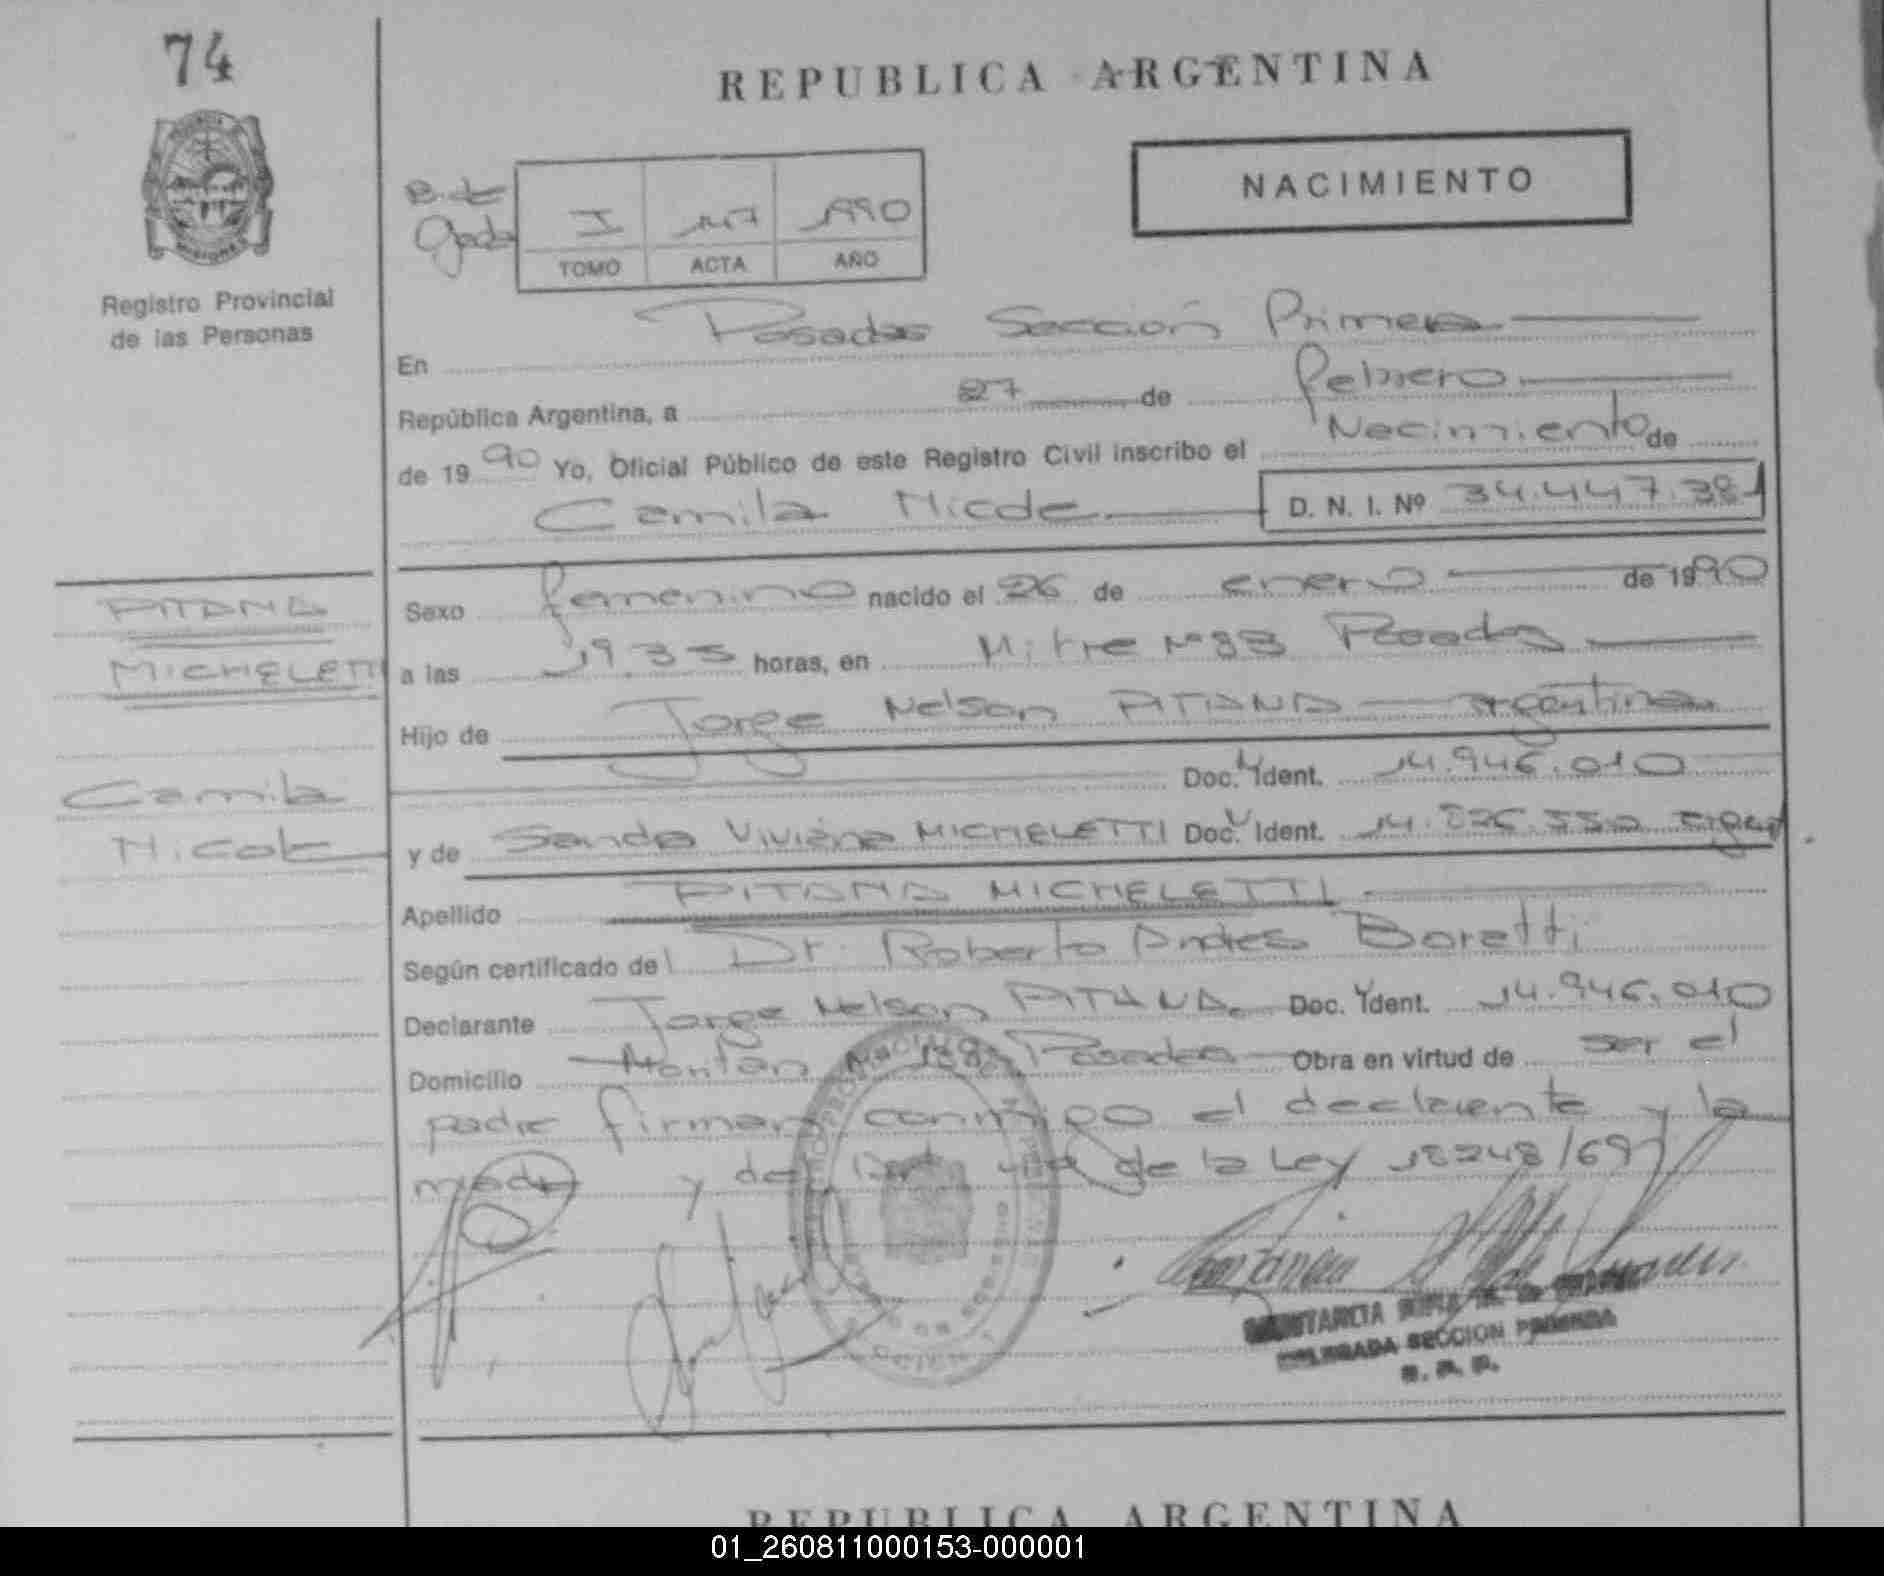 74
REPUBLICA ARGENTINA
NACIMIENTO
I 147 1990
TOMO ACTA AÑO
Registro Provincial
de las Personas
Posadas Sección Primera
En
República Argentina, a 27 de febrero
de 1990 Yo, Oficial Público de este Registro Civil inscribo el Nacimiento de
Camila Nicole D. N. I. Nº 34.447.381
PITANA
MICHELETTI
Camila
Nicole
Sexo femenino nacido el 26 de enero de 1990
a las 19.35 horas, en Mitre Nº 83 Posadas
Hijo de Jorge Nelson PITANA argentina
Doc. Ident. 14.946.010
y de Sandra Viviana MICHELETTI Doc. Ident. 14.826.550
Apellido PITANA MICHELETTI
Según certificado del Dr. Roberto Andres Boretti
Declarante Jorge Nelson PITANA Doc. Ident. 14.946.010
Domicilio Posadas Obra en virtud de ser el
padre firman conmigo el declarante y la
madre y de la Ley 18248/69
DELEGADA SECCION PRIMERA
REPUBLICA ARGENTINA
01_260811000153-000001